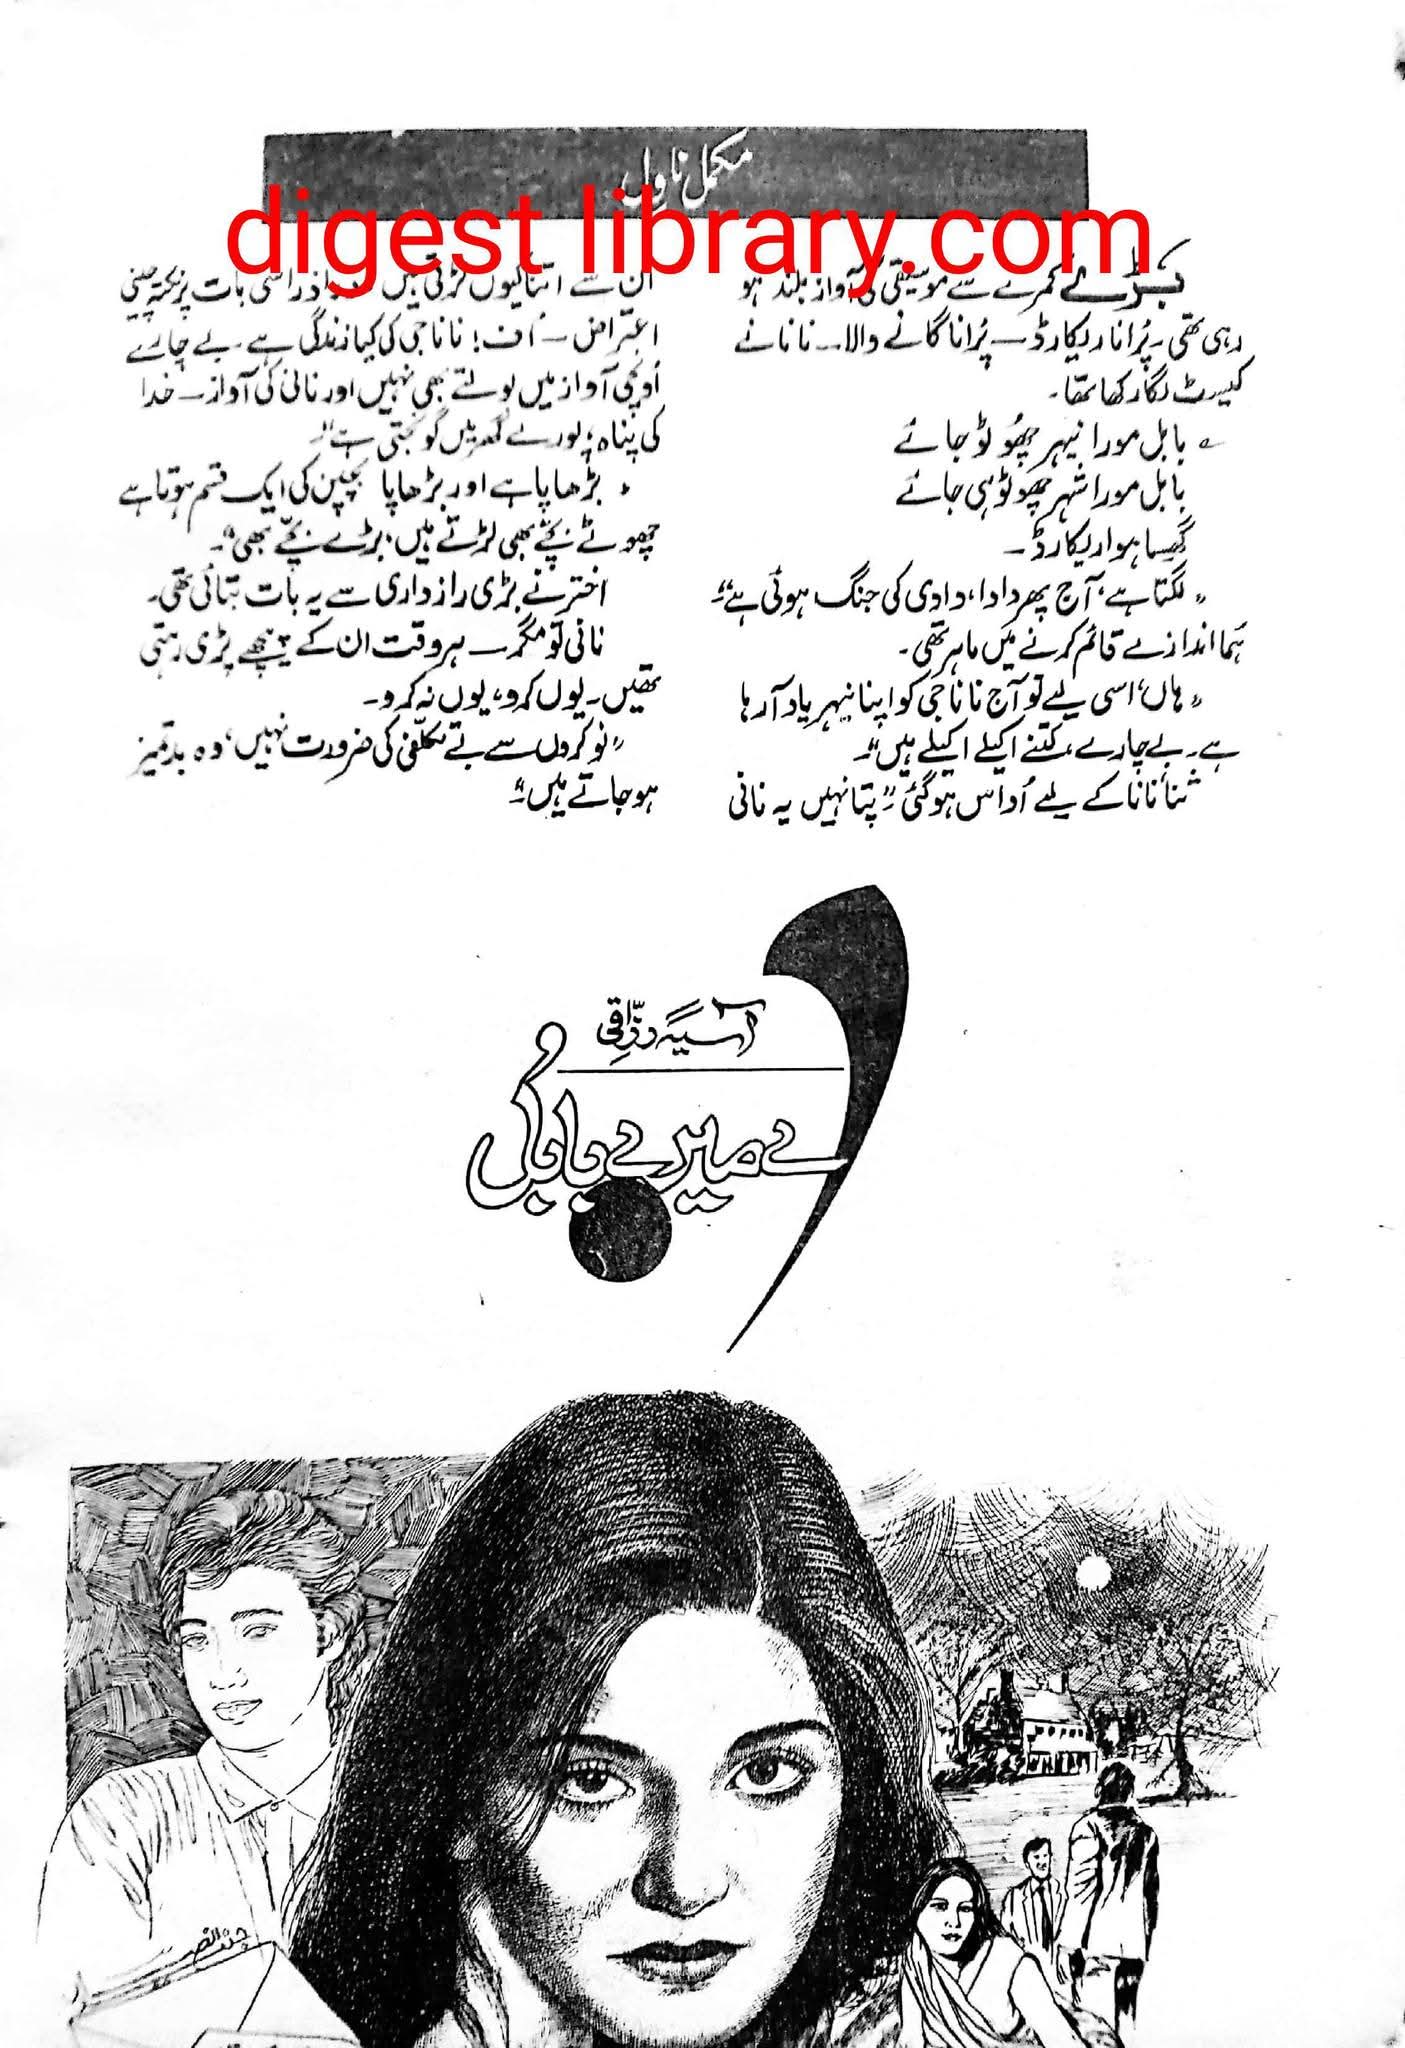 مکمل ناول
digest library.com
بڑے کمرے سے موسیقی کی آواز بلند ہو
رہی تھی۔ پُرانا ریکارڈ۔ پُرانا گانے والا۔ نانا نے
کیسٹ لگا رکھا تھا۔
ے بابل مورا نیہر چھُوٹو جائے
بابل مورا شہر چھوٹو ہی جائے
گھسا ہوا ریکارڈ۔
"لگتا ہے، آج پھر دادا، دادی کی جنگ ہوئی ہے"۔
ہُما اندازے قائم کرنے میں ماہر تھی۔
"ہاں، اسی لیے تو آج نانا جی کو اپنا نیہر یاد آ رہا
ہے۔ بے چارے کتنے اکیلے اکیلے ہیں"۔
ثنا نانا کے لیے اُداس ہو گئی "پتا نہیں یہ نانی
ان سے اتنا کیوں لڑتی ہیں ذرا ذرا سی بات پر نکتہ چینی
اعتراض۔ اُف! نانا جی کی کیا زندگی ہے۔ بے چارے
اُونچی آواز میں بولتے بھی نہیں اور نانی کی آواز۔ خدا
کی پناہ، پورے گھر میں گونجتی ہے"۔
"بڑھاپا ہے اور بڑھاپا بچپن کی ایک قسم ہوتا ہے
چھوٹے بچّے بھی لڑتے ہیں، بڑے بچّے بھی"۔
اختر نے بڑی رازداری سے یہ بات بتائی تھی۔
نانی تو مگر۔ ہر وقت ان کے پیچھے پڑی رہتی
تھیں۔ یوں کرو، یوں نہ کرو۔
"نوکروں سے بے تکلّفی کی ضرورت نہیں، وہ بدتمیز
ہو جاتے ہیں"۔
آسیہ رزّاقی
اے میرے بابُل